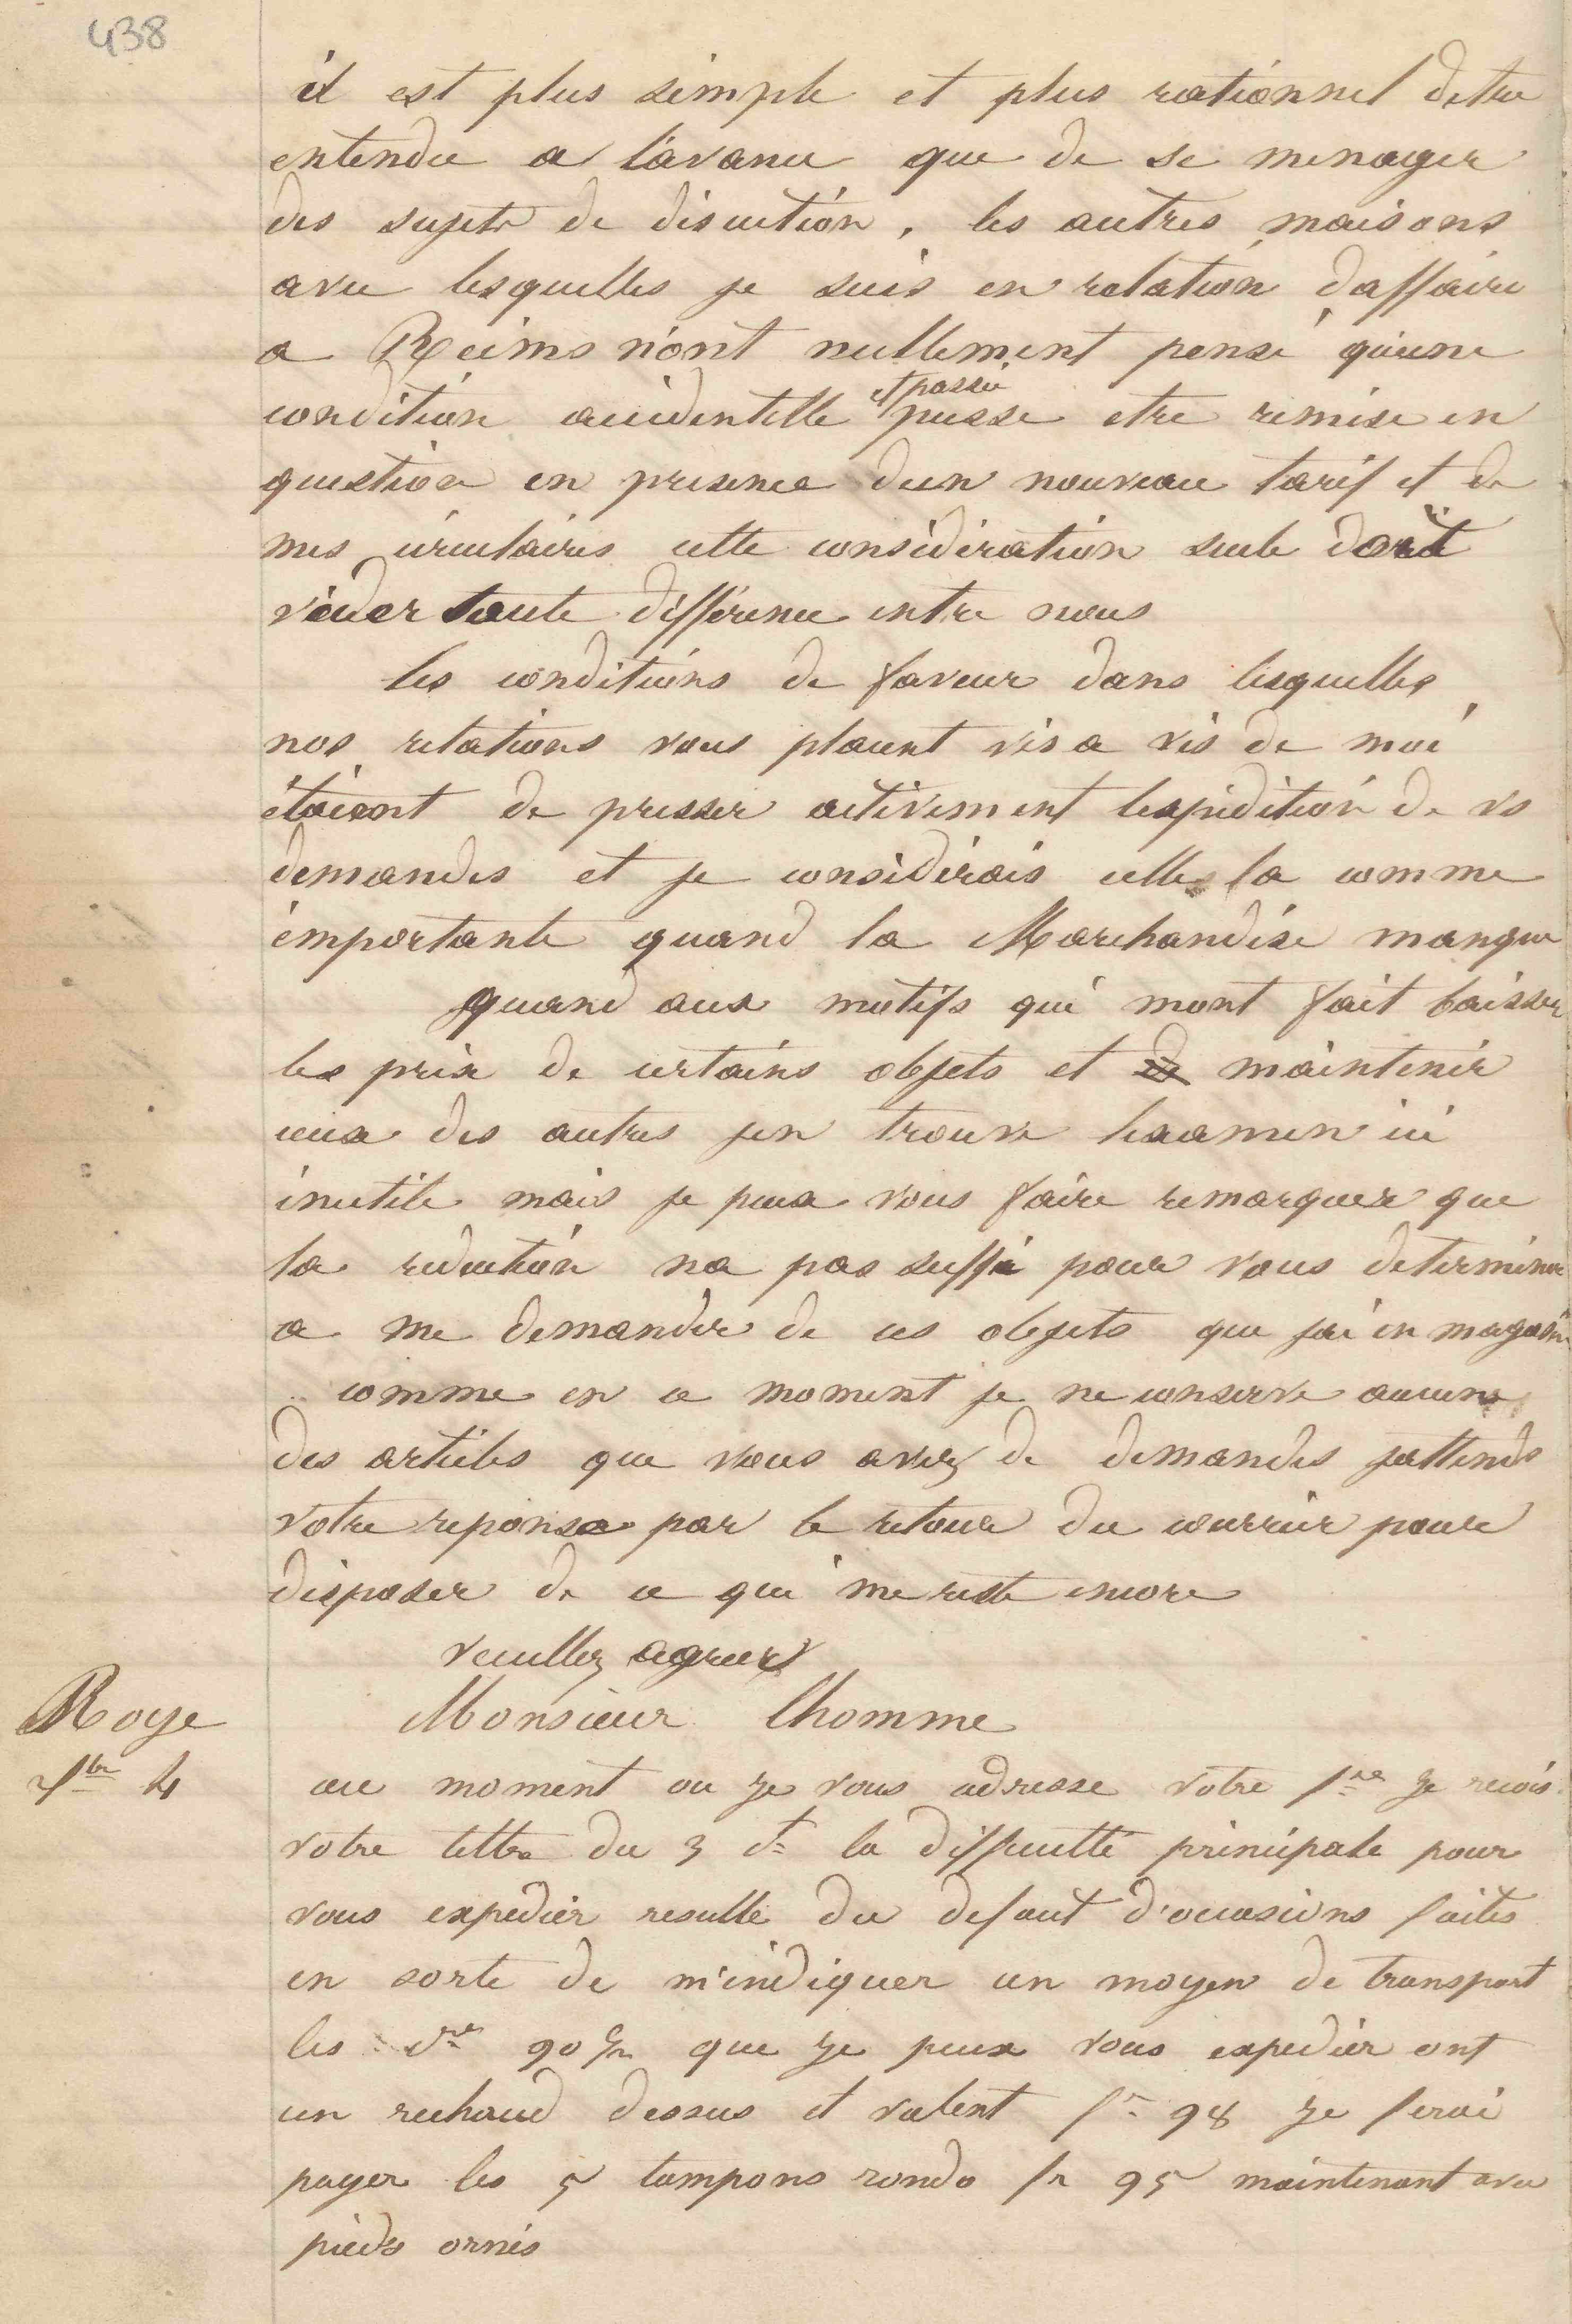 438
il est plus simple et plus rationnel detre
entendu a l'avance que de se menager
des sujets de discution, les autres maisons
avec lesquelles je suis en relation daffaire
a Reims n'ont nullement pensé qu'une
condition accidentelle et passée pusse etre remise en
question en presence dun nouveau tarif et de
mes circulaires cette considération seule doit
vider toute différence entre nous
les conditions de faveur dans lesquelles
nos relations vous placent vis a vis de moi
étaient de presser activement lexpédition de vs
demandes et je considérais celle la comme
importante quand la Marchandise manque
quand aux motifs qui mont fait baisser
les prix de certains objets et de maintenir
ceux des autres jen trouve lexamen ici
inutile mais je peux vous faire remarquer que
la réduction na pas suffi pour vous determiner
a me demander de ces objets que jai en magasin
comme en ce moment je ne conserve aucuns
des articles que vous avez de demandés jattends
votre reponse par le retour du courrier pour
disposer de ce qui me reste encore
veuillez agreer
Roye
Monsieur Lhomme
7bre 4
au moment ou je vous adresse votre fre je recois
votre lettre du 3 ct la difficulté principale pour
vous expedier resulte du defaut d'occasions faites
en sorte de m'indiquer un moyen de transport
les 90 que je peux vous expedier ont
un rechaud dessus et valent fr 98 je ferai
payer les 5 tampons ronds fr 95 maintenant avec
pieds ornés